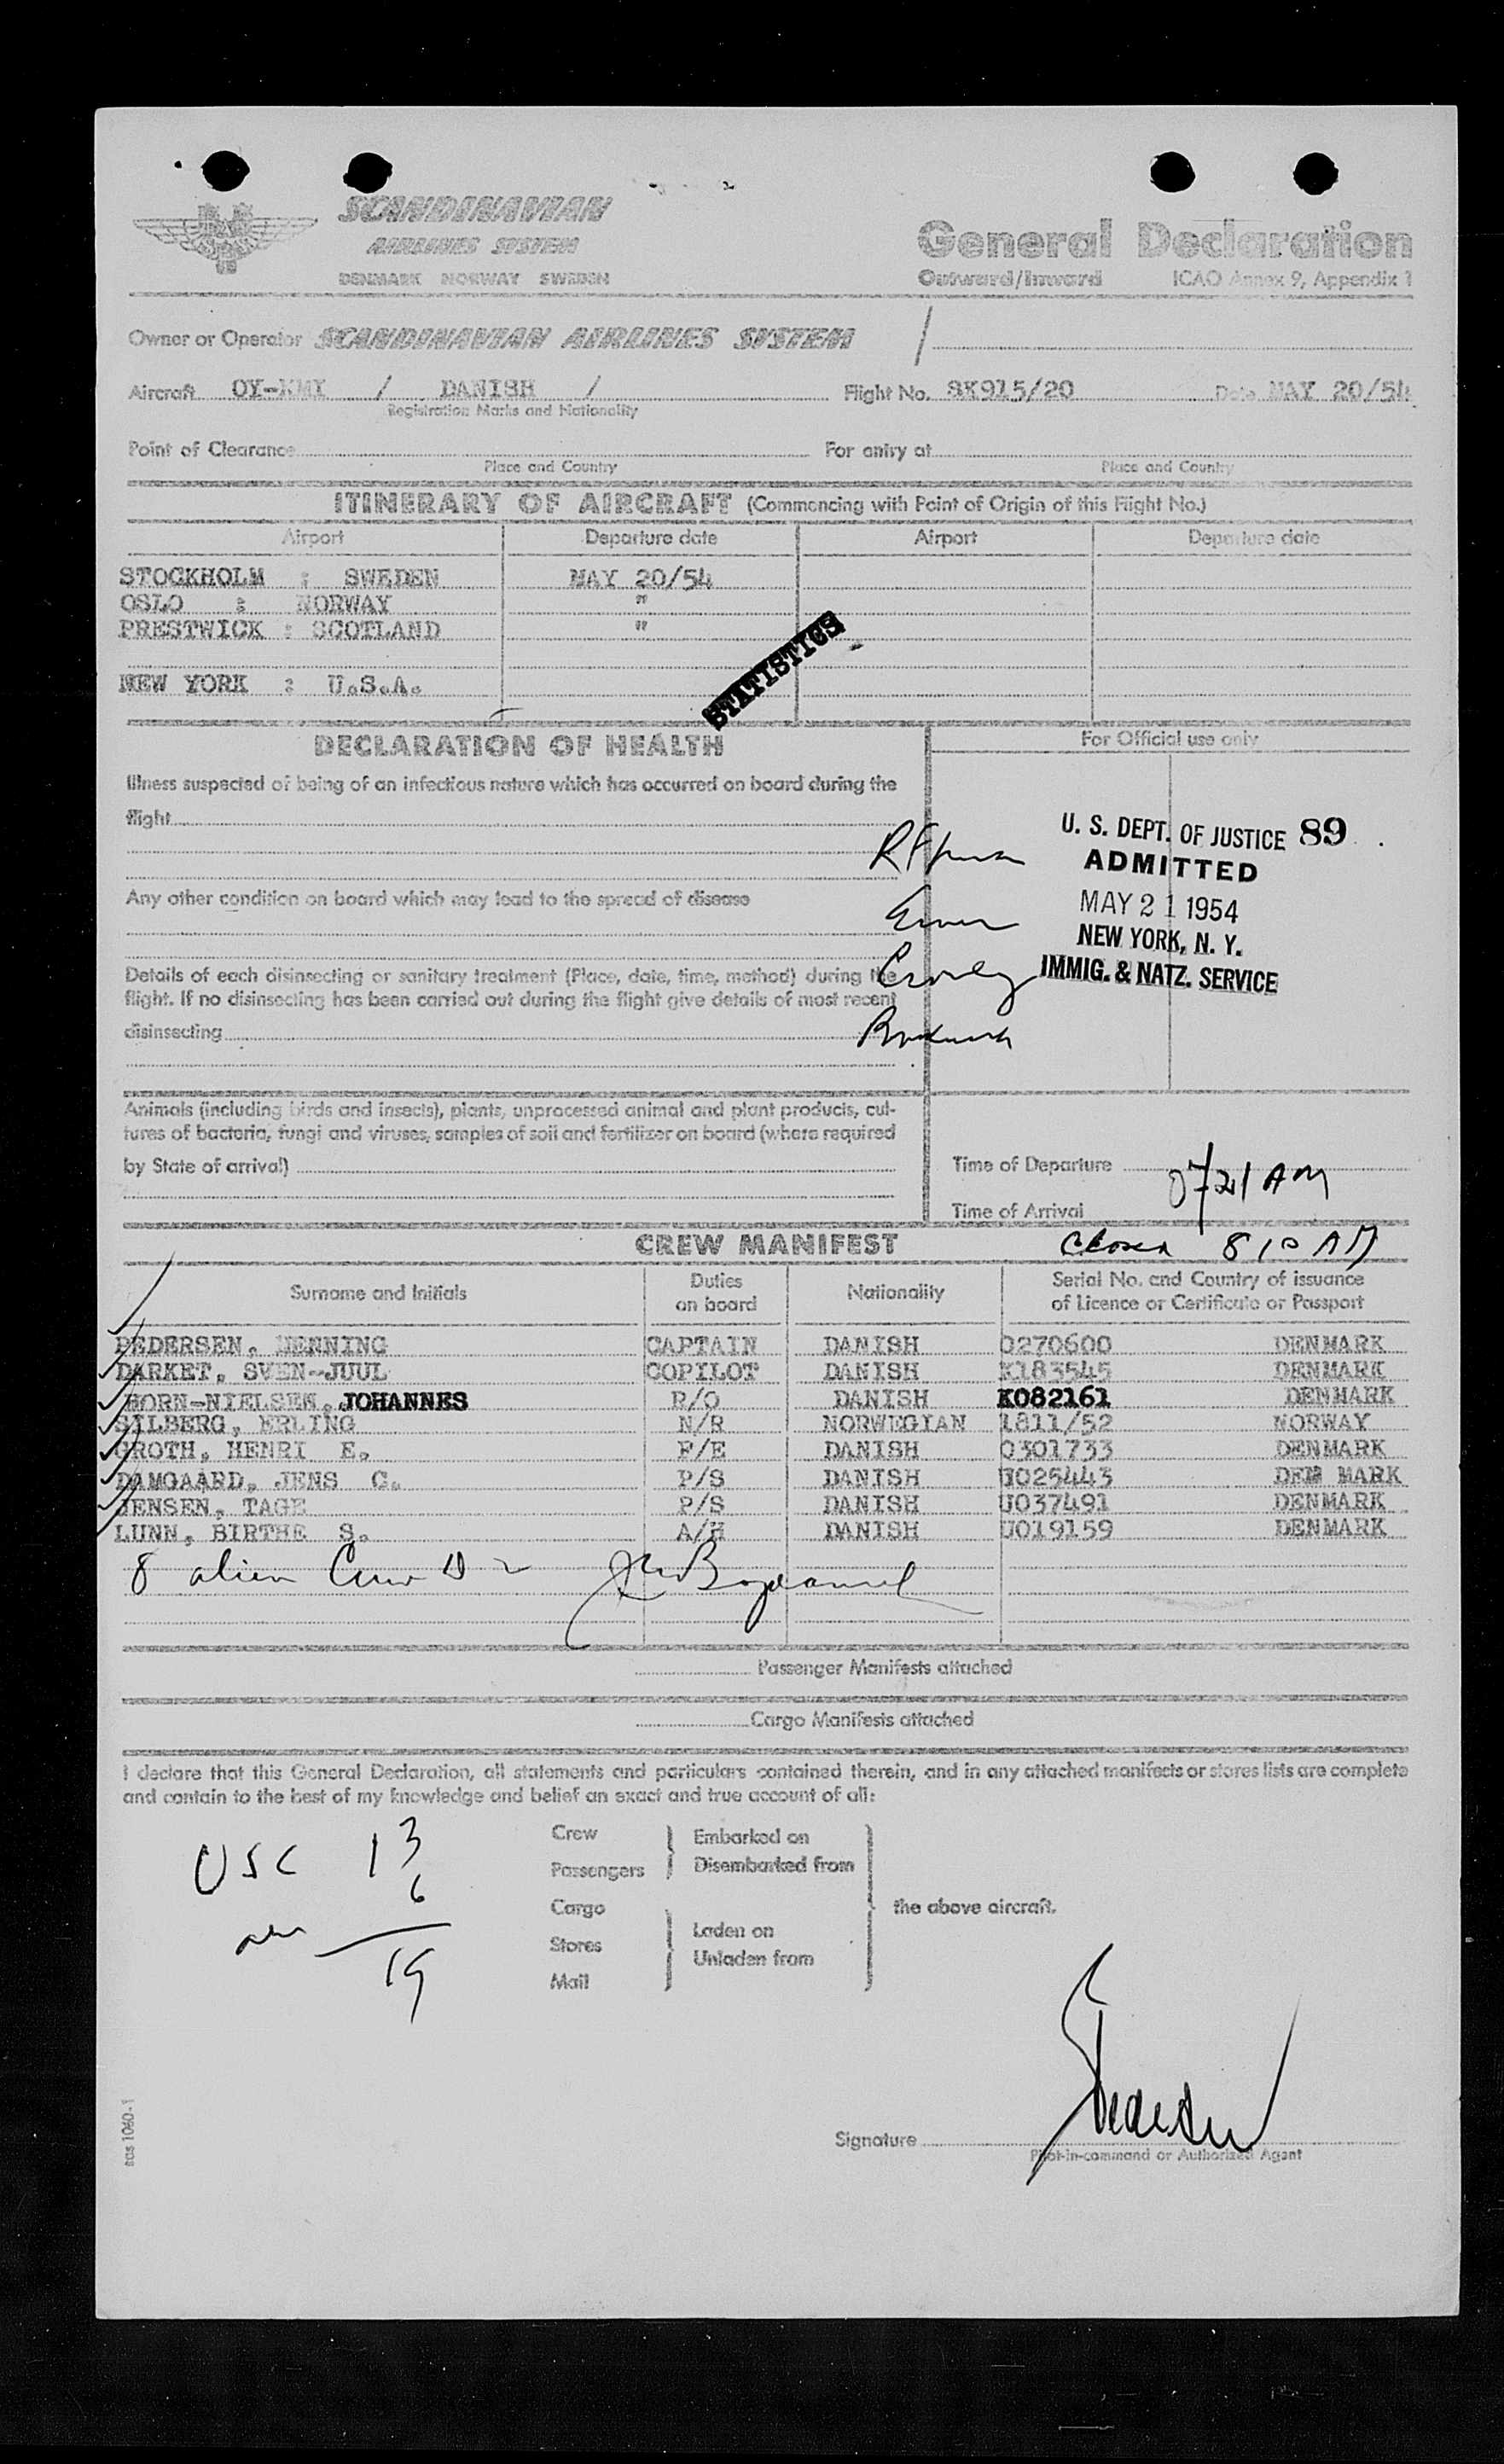 SCANDINAVIAN
AIRLINES SYSTEM
DENMARK NORWAY SWEDEN
General Declaration
Outward/Inward ICAO Annex 9, Appendix 1
Owner or Operator SCANDINAVIAN AIRLINES SYSTEM /
Aircraft OY-KMI / DANISH / Flight No. SK915/20 Date MAY 20/54
Registration Marks and Nationality
Point of Clearance For entry at
Place and Country Place and Country
ITINERARY OF AIRCRAFT (Commencing with Point of Origin of this Flight No.)
Airport Departure date Airport Departure date
STOCKHOLM : SWEDEN MAY 20/54
OSLO : NORWAY "
PRESTWICK : SCOTLAND "
STATISTICS
NEW YORK : U.S.A.
DECLARATION OF HEALTH
For Official use only
Illness suspected of being of an infectious nature which has occurred on board during the
flight
U. S. DEPT. OF JUSTICE 89
ADMITTED
MAY 21 1954
NEW YORK, N. Y.
IMMIG. & NATZ. SERVICE
Any other condition on board which may lead to the spread of disease
Details of each disinsecting or sanitary treatment (Place, date, time, method) during the
flight. If no disinsecting has been carried out during the flight give details of most recent
disinsecting
Animals (including birds and insects), plants, unprocessed animal and plant products, cul-
tures of bacteria, fungi and viruses, samples of soil and fertilizer on board (where required
by State of arrival)
Time of Departure
0721 AM
Time of Arrival
CREW MANIFEST
Closed 810 AM
Surname and Initials Duties on board Nationality Serial No. and Country of issuance of Licence or Certificate or Passport
PEDERSEN, HENNING CAPTAIN DANISH 0270600 DENMARK
DARKET, SVEN-JUUL COPILOT DANISH K183545 DENMARK
HORN-NIELSEN, JOHANNES R/O DANISH K082161 DENMARK
SILBERG, ERLING N/R NORWEGIAN 1811/52 NORWAY
GROTH, HENRI E. F/E DANISH 0301733 DENMARK
DAMGAARD, JENS C. P/S DANISH U025443 DEN MARK
JENSEN, TAGE P/S DANISH U037491 DENMARK
LUNN, BIRTHE S. A/H DANISH U019159 DENMARK
8 alien Crew D 2
Passenger Manifests attached
Cargo Manifests attached
I declare that this General Declaration, all statements and particulars contained therein, and in any attached manifests or stores lists are complete
and contain to the best of my knowledge and belief an exact and true account of all:
Crew
Passengers
Embarked on
Disembarked from
Cargo
Stores
Mail
Laden on
Unladen from
the above aircraft.
USC 13
6
19
Signature
Pilot-in-command or Authorized Agent
sas 1060-1